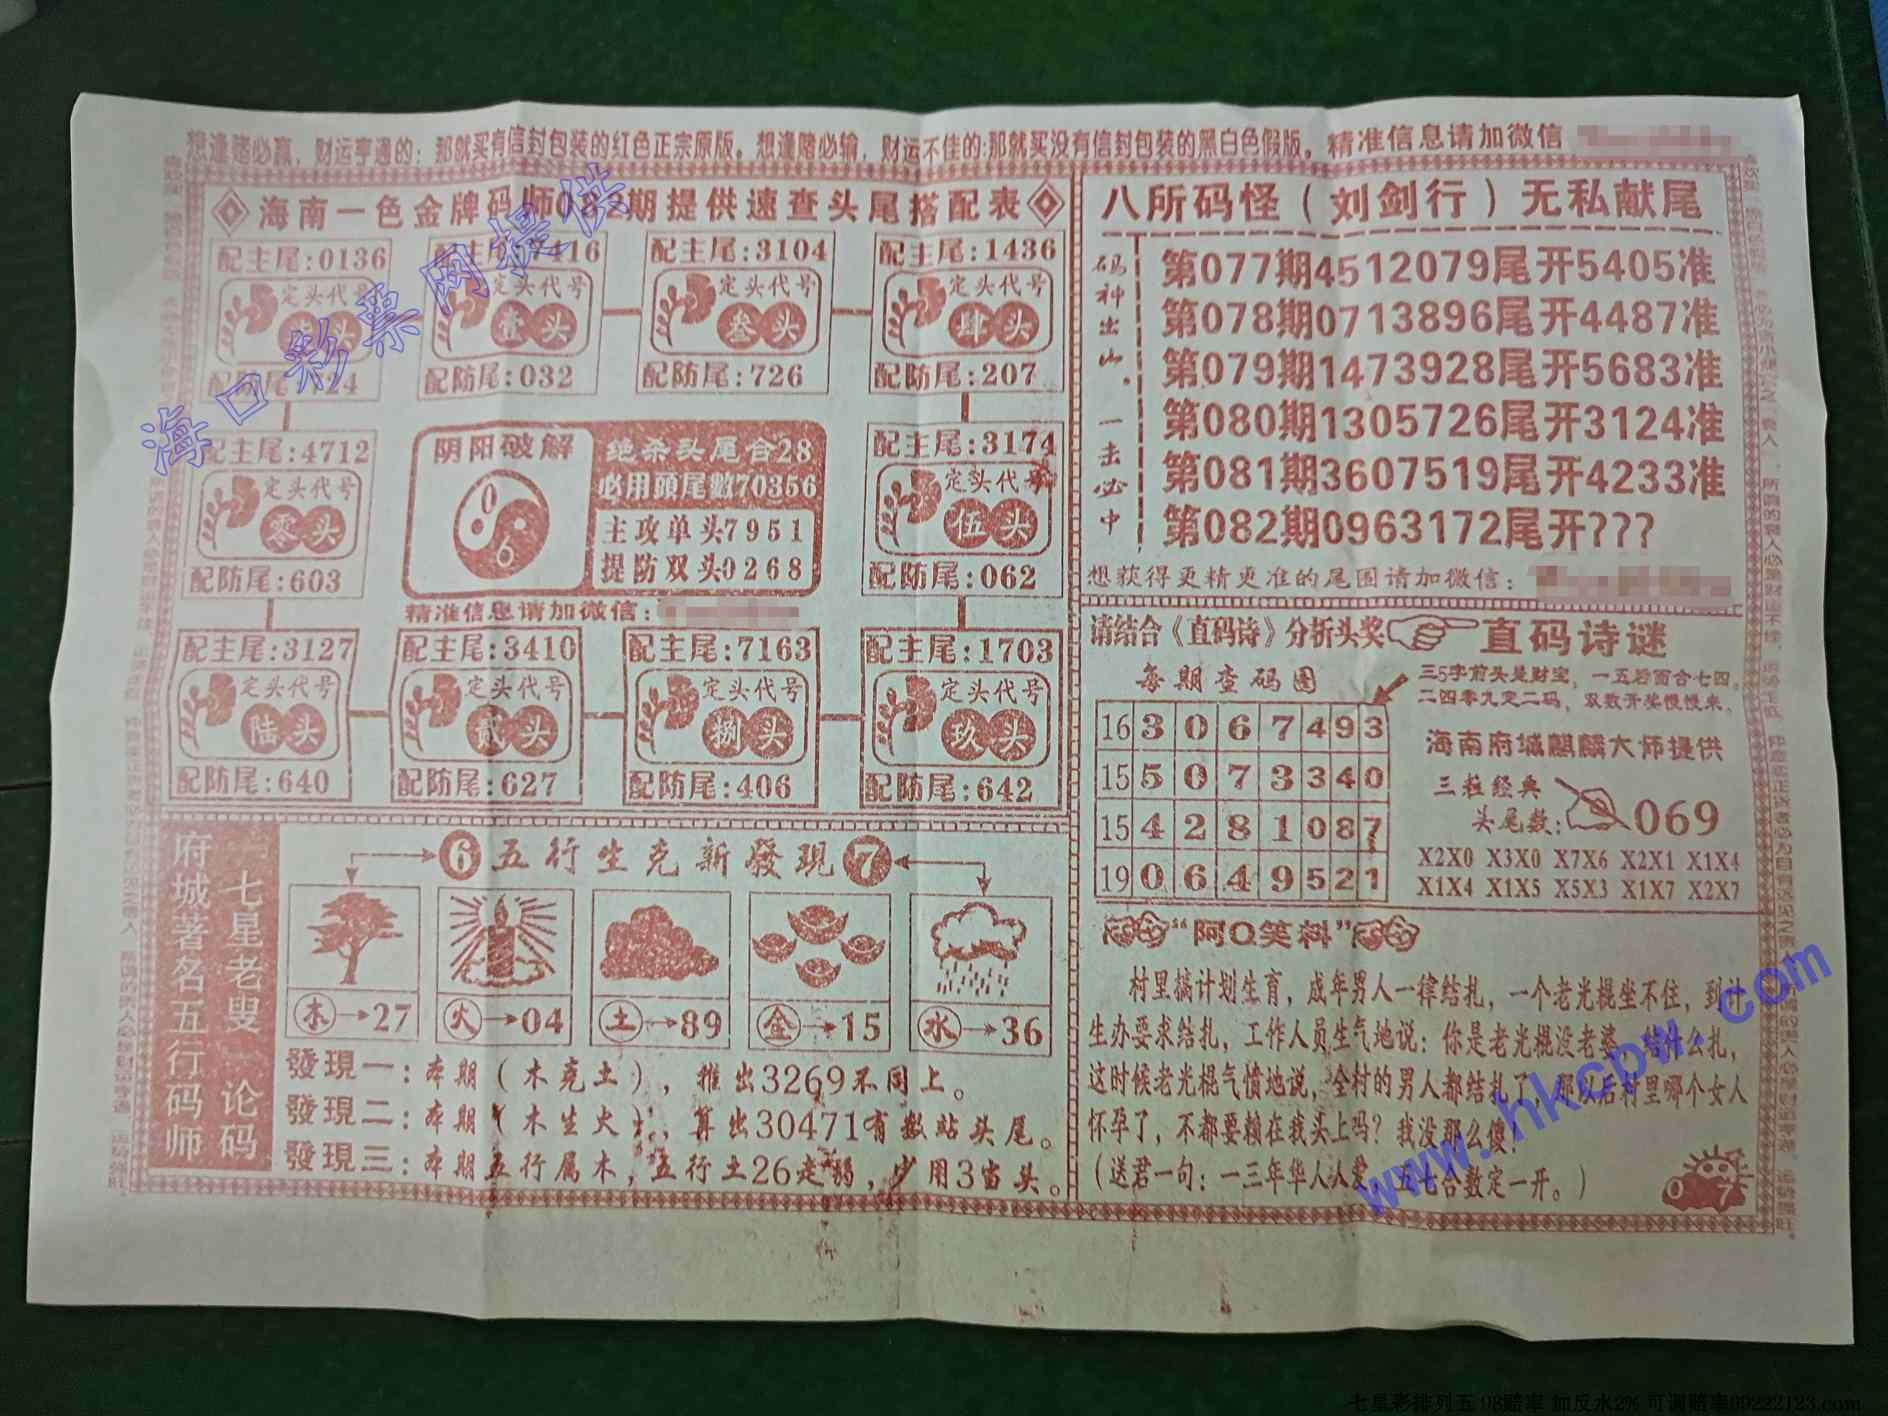 想逢赌必赢，财运亨通的：那就买有信封包装的红色正宗原版。想逢赌必输，财运不佳的:那就买没有信封包装的黑白色假版。精准信息请加微信
海南一色金牌码师082期提供速查头尾搭配表
配主尾:0136
定头代号
头
配防尾:
配主尾:
定头代号
壹头
配防尾:032
配主尾:3104
定头代号
叁头
配防尾:726
配主尾:1436
定头代号
肆头
配防尾:207
配主尾:4712
定头代号
零头
配防尾:603
阴阳破解
0
6
绝杀头尾合28
必用頭尾數70356
主攻单头7951
提防双头0268
配主尾:3174
定头代号
伍头
配防尾:062
精准信息请加微信:
配主尾:3127
定头代号
陆头
配防尾:640
配主尾:3410
定头代号
贰头
配防尾:627
配主尾:7163
定头代号
捌头
配防尾:406
配主尾:1703
定头代号
玖头
配防尾:642
府城著名五行码师
七星老叟 论码
6五行生克新發現7
木→27
火→04
土→89
金→15
水→36
發現一:本期(木克土),推出3269不同上。
發現二:本期(木生火),算出30471有數站头尾。
發現三:本期五行属木,五行土26走弱,少用3當头。
八所码怪(刘剑行)无私献尾
码神出山.一击必中
第077期4512079尾开5405准
第078期0713896尾开4487准
第079期1473928尾开5683准
第080期1305726尾开3124准
第081期3607519尾开4233准
第082期0963172尾开???
想获得更精更准的尾围请加微信:
请结合《直码诗》分析头奖
直码诗谜
每期查码图
16 3 0 6 7 4 9 3
15 5 0 7 3 3 4 0
15 4 2 8 1 0 8 7
19 0 6 4 9 5 2 1
三5字前头是财宝,一五后面合七四。
二四零九定二码,双数开奖慢慢来。
海南府城麒麟大师提供
三粒经典
头尾数:069
X2X0 X3X0 X7X6 X2X1 X1X4
X1X4 X1X5 X5X3 X1X7 X2X7
“阿Q笑料”
村里搞计划生育,成年男人一律结扎,一个老光棍坐不住,到计
生办要求结扎,工作人员生气地说:你是老光棍没老婆,结什么扎,
这时候老光棍气愤地说,全村的男人都结扎了,那以后村里哪个女人
怀孕了,不都要赖在我头上吗?我没那么傻!
(送君一句:一三年华人人爱,五七合数定一开。)
0 7
海口彩票网提供
www.hkcpw.com
七星彩排列五 98赔率 加反水2% 可调赔率09222123.com